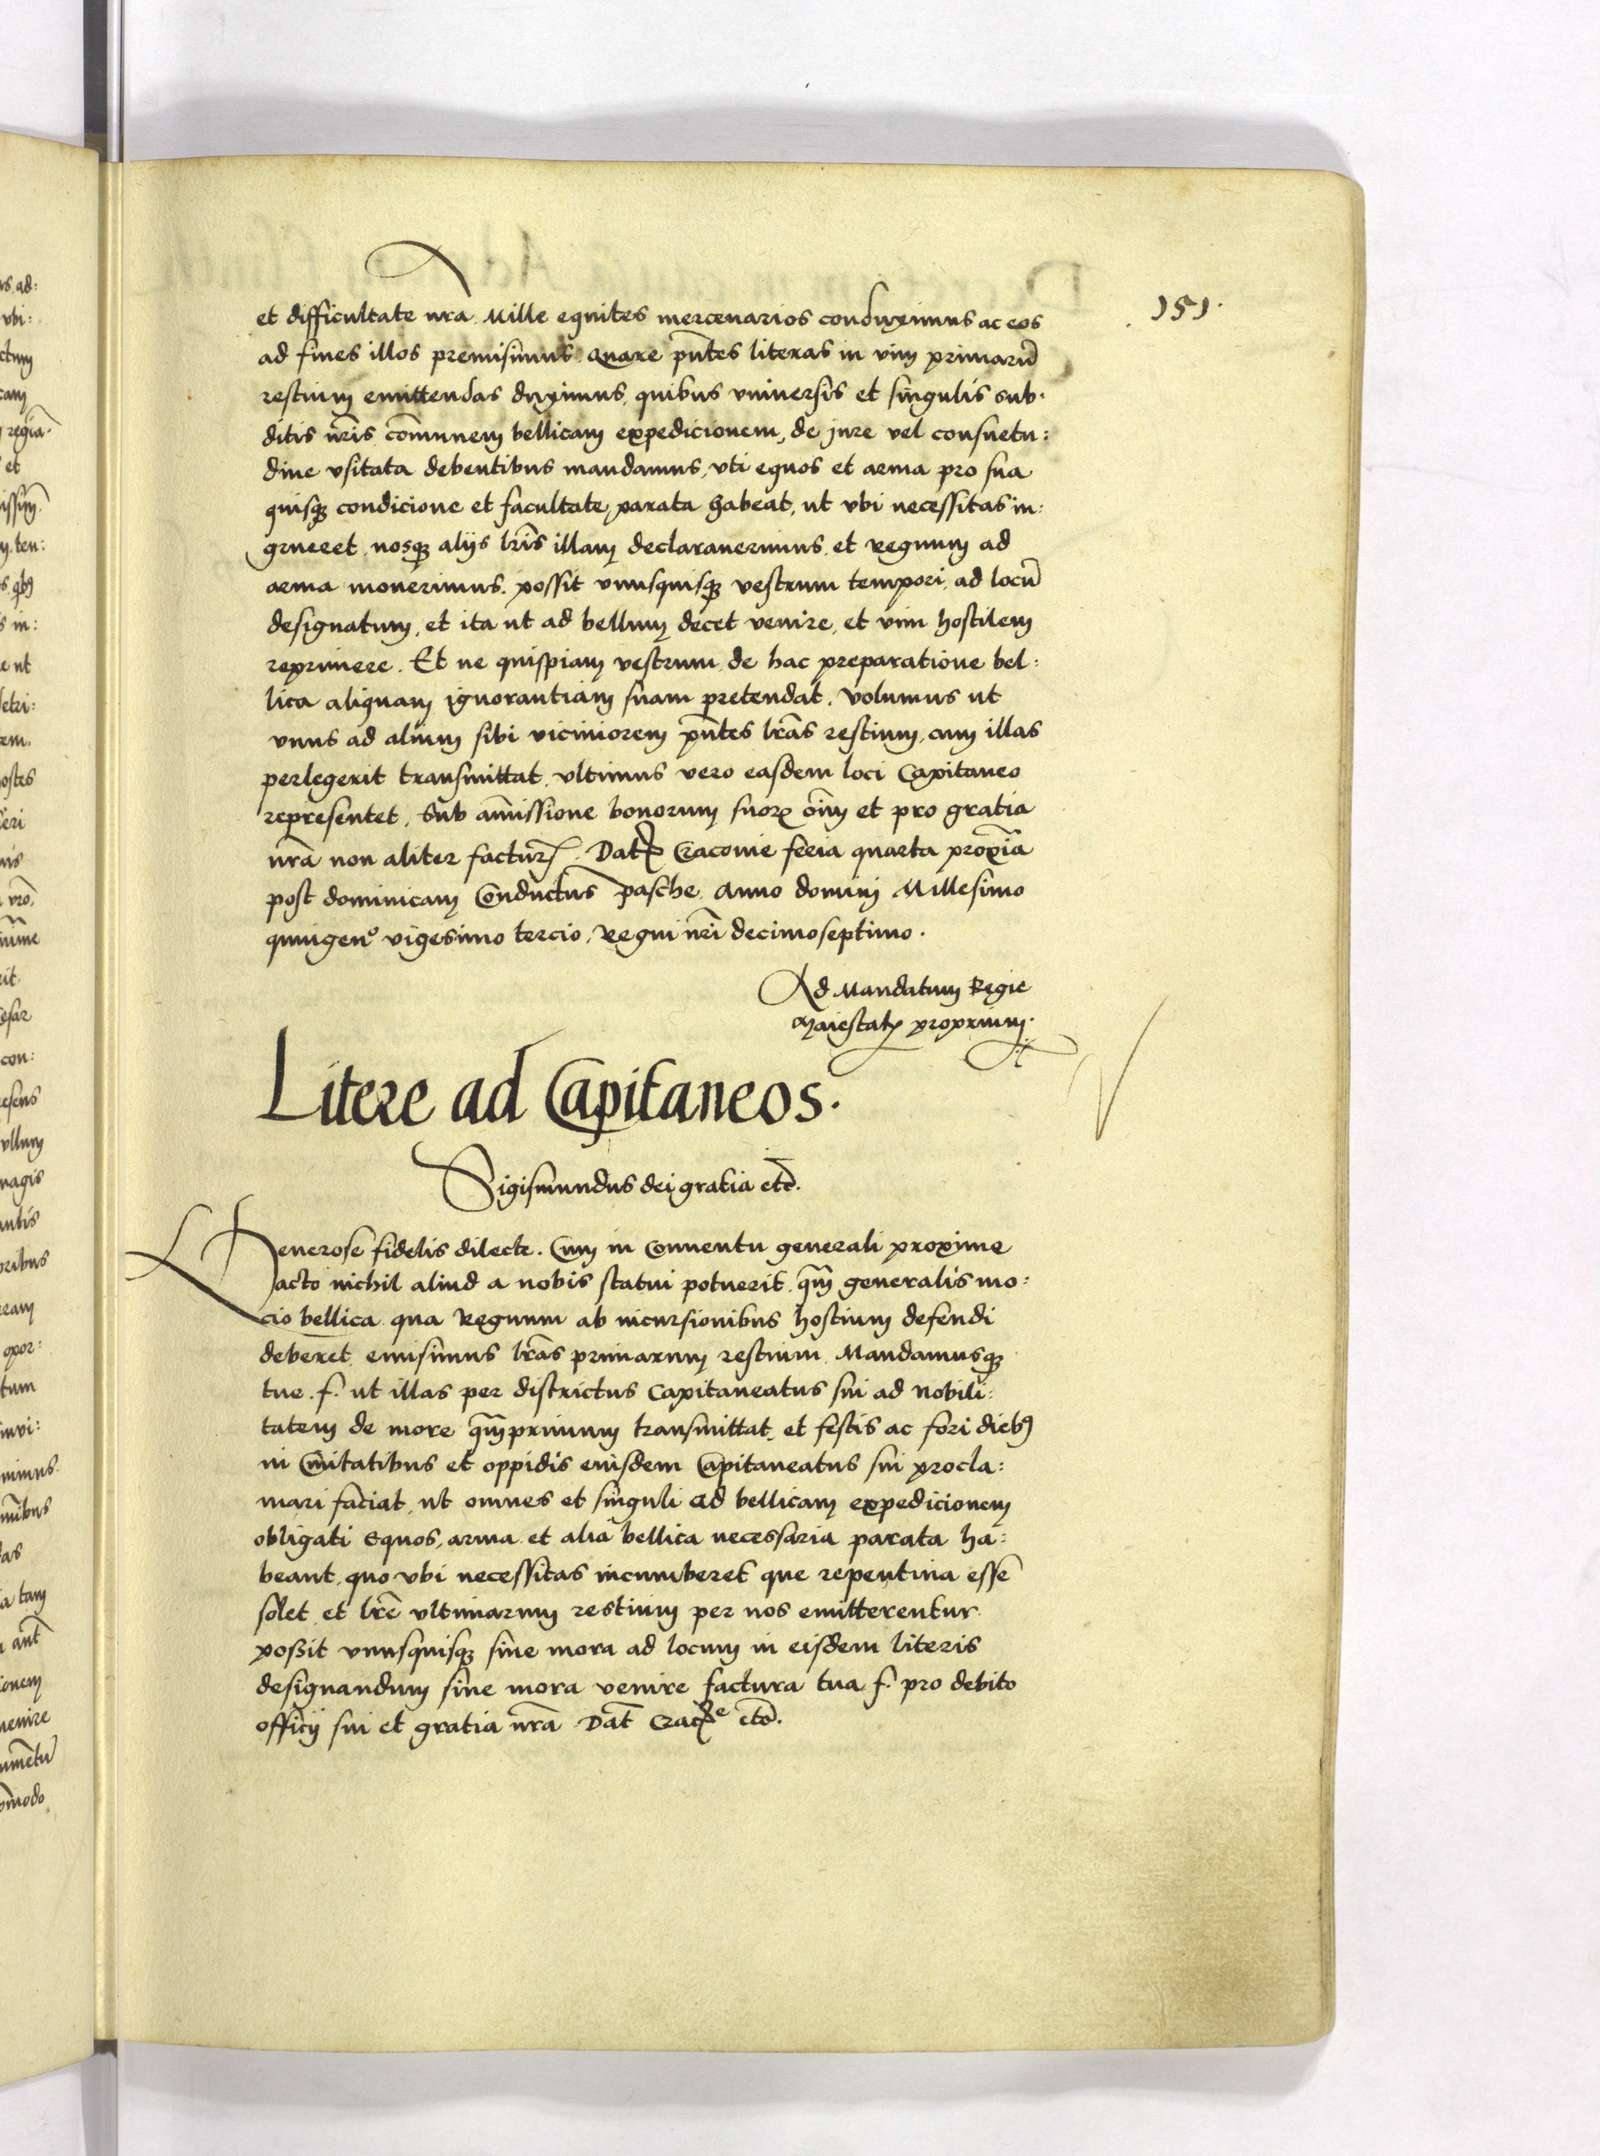 151.
et difficultate nra Mille equites mercenarios conduximus ac eos
ad fines illos premisimus. Quare pñtes literas in vim primarū
restium emittendas duximus, quibus vniuersis et singulis sub:
ditis nr̃is cõmunem bellicam expedicionem, de jure vel consuetu:
dine vsitata debentibus mandamus, vti equos et arma pro sua
quisq condicione et facultate parata habeat, ut vbi necessitas in:
grueret, nosq alijs lr̃is illam declarauerimus, et Regnum ad
arma monerimus, possit vnusquisq vestrum tempori, ad locū
designatum, et ita ut ad bellum decet venire, et vim hostilem
reprimere. Et ne quispiam vestrum de hac preparatione bel:
lica aliquam ignorantiam suam pretendat, volumus ut
vnus ad alium sibi viciniorem pñtes lr̃as restium, cum illas
perlegerit transmittat, vltimus vero easdem loci Capitaneo
representet, Sub amissione bonorum suorꝝ oĩm et pro gratia
nrã non aliter factur. Dat Cracouie feria quarta proxĩa
post dominicam Conductus pasche, Anno domini Millesimo
quingen° vigesimo tercio, Regni nr̃i decimoseptimo.
Ad Mandatum Regie
Maiestatꝭ proprium.
Litere ad Capitaneos.
Sigismundus dei gratia etc̃.
Generose fidelis dilecte. Cum in Conuentu generali proxime
acto nichil aliud a nobis statui potuerit, qm̃ generalis mo:
cio bellica qua Regnum ab incursionibus hostium defendi
deberet, emisimus lr̃as primarum restium. Mandamusq
tue. f. ut illas per districtus Capitaneatus sui ad Nobili:
tatem de more qm̃primum transmittat, et festis ac fori dieb
in Ciuitatibus et oppidis eiusdem Capitaneatus sui procla:
mari faciat, ut omnes et singuli ad bellicam expedicionem
obligati Equos, arma et alia bellica necessaria parata ha:
beant, quo vbi necessitas incumberet que repentina esse
solet, et lr̃e vltimarum restium per nos emitterentur
possit vnusquisq sine mora ad locum in eisdem literis
designandum sine mora venire factura tua f. pro debito
officij sui et gratia nrã Dat̃ Crac e etc̃.